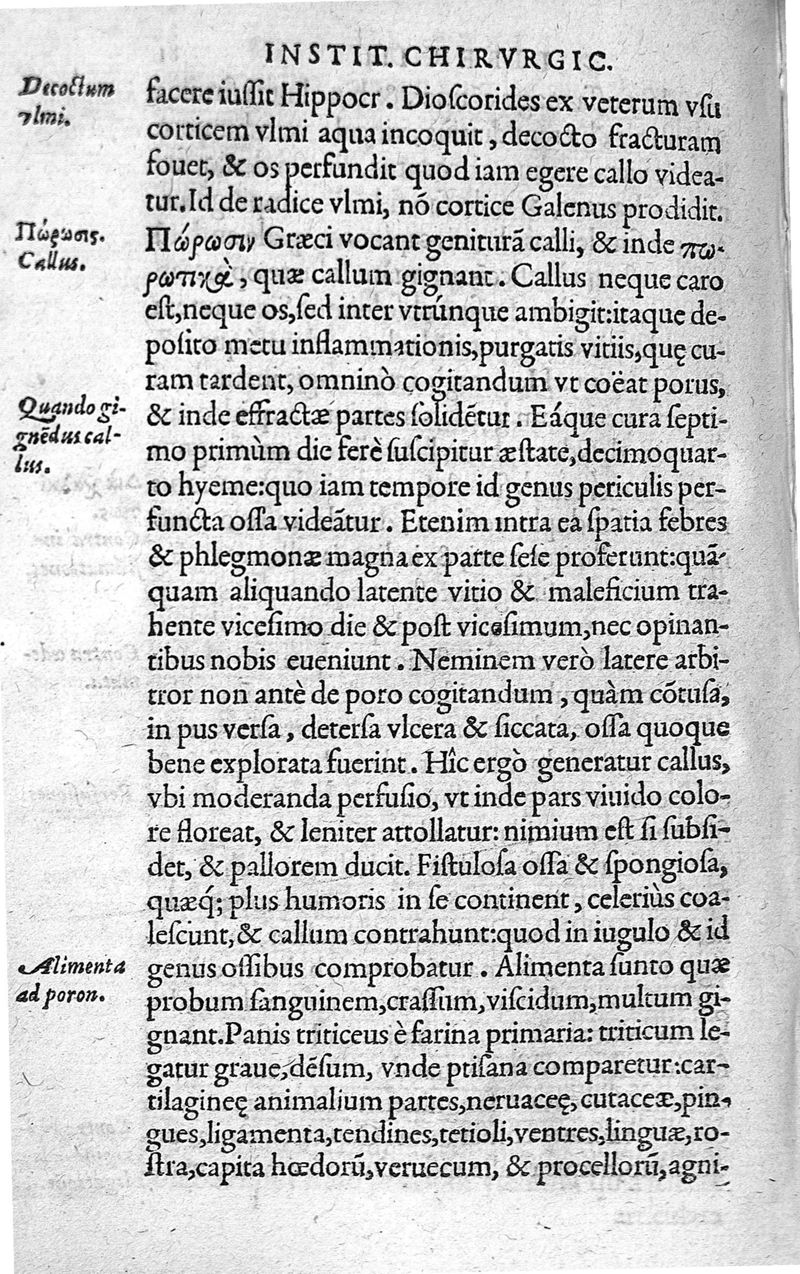 INSTIT. CHIRVRGIC.
Decoctum
vlmi.
facere iussit Hippocr. Dioscorides ex veterum vsu
corticem vlmi aqua incoquit, decocto fracturam
fouet, & os perfundit quod iam egere callo videa-
tur. Id de radice vlmi, nõ cortice Galenus prodidit.
Πώρωσις.
Callus.
Πώρωσιν Græci vocant geniturã calli, & inde πω-
ρωτικὰ, quæ callum gignant. Callus neque caro
est, neque os, sed inter vtrúnque ambigit: itaque de-
posito metu inflammationis, purgatis vitiis, quę cu-
ram tardent, omninò cogitandum vt coëat porus,
Quando gi-
gnẽdus cal-
lus.
& inde effractæ partes solidẽtur. Eáque cura septi-
mo primùm die ferè suscipitur æstate, decimoquar-
to hyeme: quo iam tempore id genus periculis per-
functa ossa videãtur. Etenim intra ea spatia febres
& phlegmonæ magna ex parte sese proferunt: quã-
quam aliquando latente vitio & maleficium tra-
hente vicesimo die & post vicesimum, nec opinan-
tibus nobis eueniunt. Neminem verò latere arbi-
tror non antè de poro cogitandum, quàm cõtusa,
in pus versa, detersa vlcera & siccata, ossa quoque
bene explorata fuerint. Hîc ergò generatur callus,
vbi moderanda perfusio, vt inde pars viuido colo-
re floreat, & leniter attollatur: nimium est si subsi-
det, & pallorem ducit. Fistulosa ossa & spongiosa,
quæq́; plus humoris in se continent, celeriùs coa-
lescunt, & callum contrahunt: quod in iugulo & id
Alimenta
ad poron.
genus ossibus comprobatur. Alimenta sunto quæ
probum sanguinem, crassum, viscidum, multum gi-
gnant. Panis triticeus è farina primaria: triticum le-
gatur graue, dẽsum, vnde ptisana comparetur: car-
tilagineę animalium partes, neruaceę, cutaceæ, pin-
gues, ligamenta, tendines, tetioli, ventres, linguæ, ro-
stra, capita hœdorũ, veruecum, & procellorũ, agni-